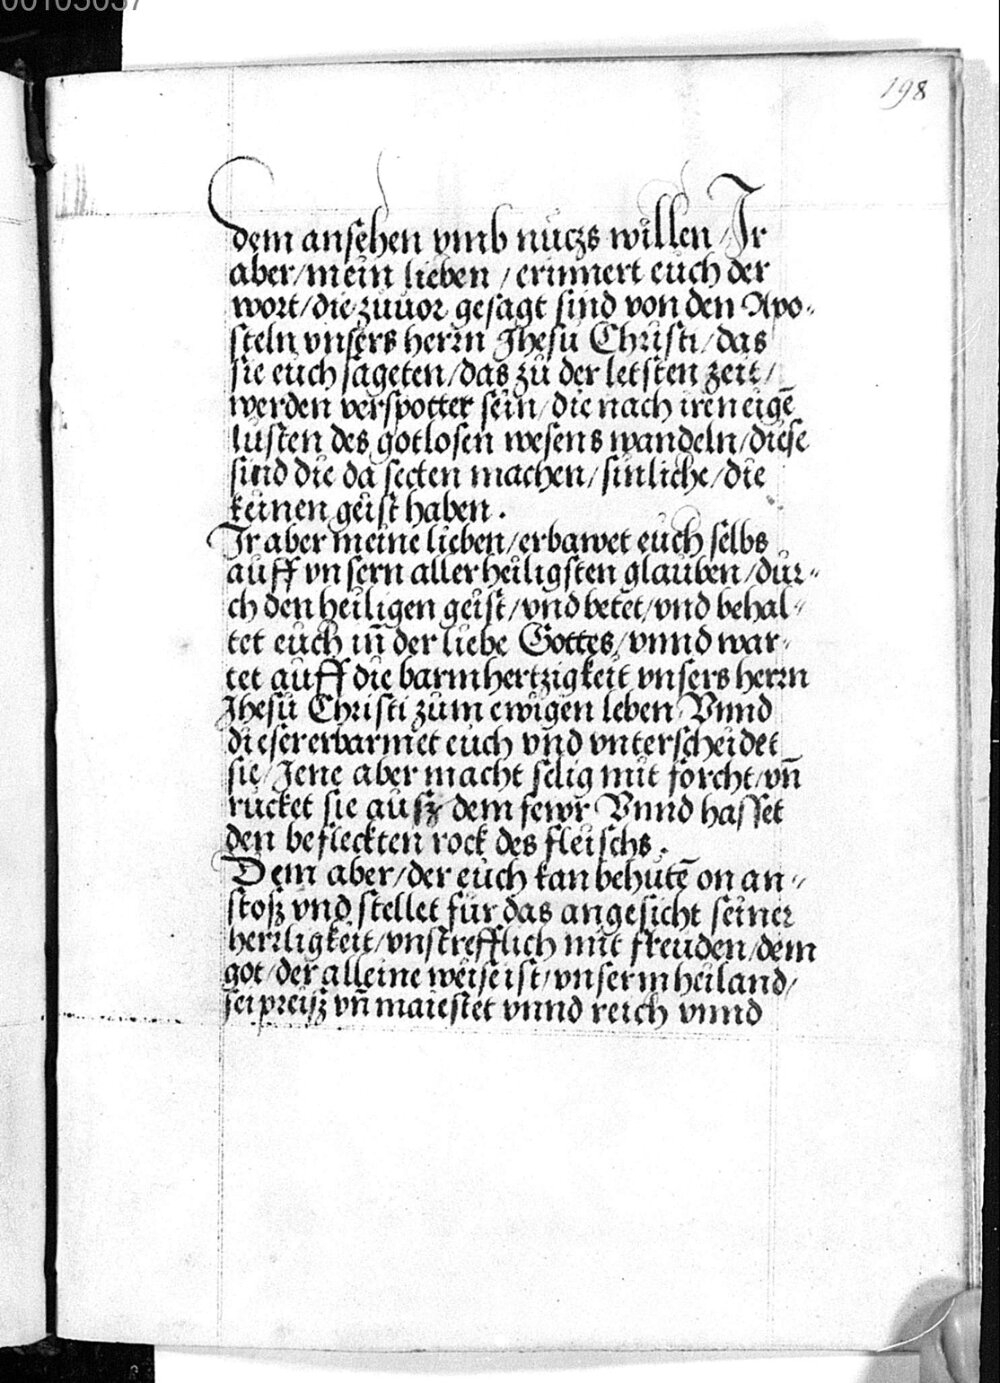 198
dem ansehen vmb nuczs willen / Ir
aber / mein lieben / erinnert euch der
wort / die zuuor gesagt sind von den Apo-
steln vnsers herrn Jhesu Christi / das
sie euch sageten / das zu der letsten zeit /
werden verspotter sein / die nach iren eigē
lusten des gotlosen wesens wandeln / diese
sind die da secten machen / sinliche / die
keinen geist haben .
Ir aber meine lieben / erbawet euch selbs
auff vnsern aller heiligsten glauben / dur-
ch den heiligen geist / vnd betet / vnd behal-
tet euch in̄ der liebe Gottes / vnnd war-
tet auff die barmhertzigkeit vnsers herrn
Jhesu Christi zum ewigen leben / Vnnd
dieser erbarmet euch vnd vnterscheidet
sie / Jene aber macht selig mit forcht / vn̄
rucket sie ausz dem fewr Vnnd hasset
den befleckten rock des fleischs .
Dem aber / der euch kan behutē on an-
stosz vnd stellet fur das angesicht seiner
herrligkeit / vnstrefflich mit freuden / dem
got / der alleine weise ist / vnserm heiland /
sei preisz vn̄ maiestet vnnd reich vnnd